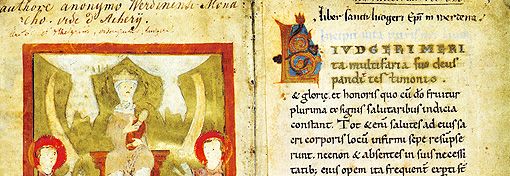 authore anonymo Werdinensi Mona
cho. vide d'Achery.
Liber sancti liudgeri Epi in werdena.
Incipit vita
LIVDGERI MERI
ta multifaria suo deus
pandit testimonio
& glorie, et honoris quo cū dō fruitur
plurima ex signis salutaribus indicia
constant. Tot & eni salutes ad eius sa
cri corporis locū infirmi sepe resupse
runt. necnon & absentes in suis necessi
tatib; eius opem ita frequent expti st